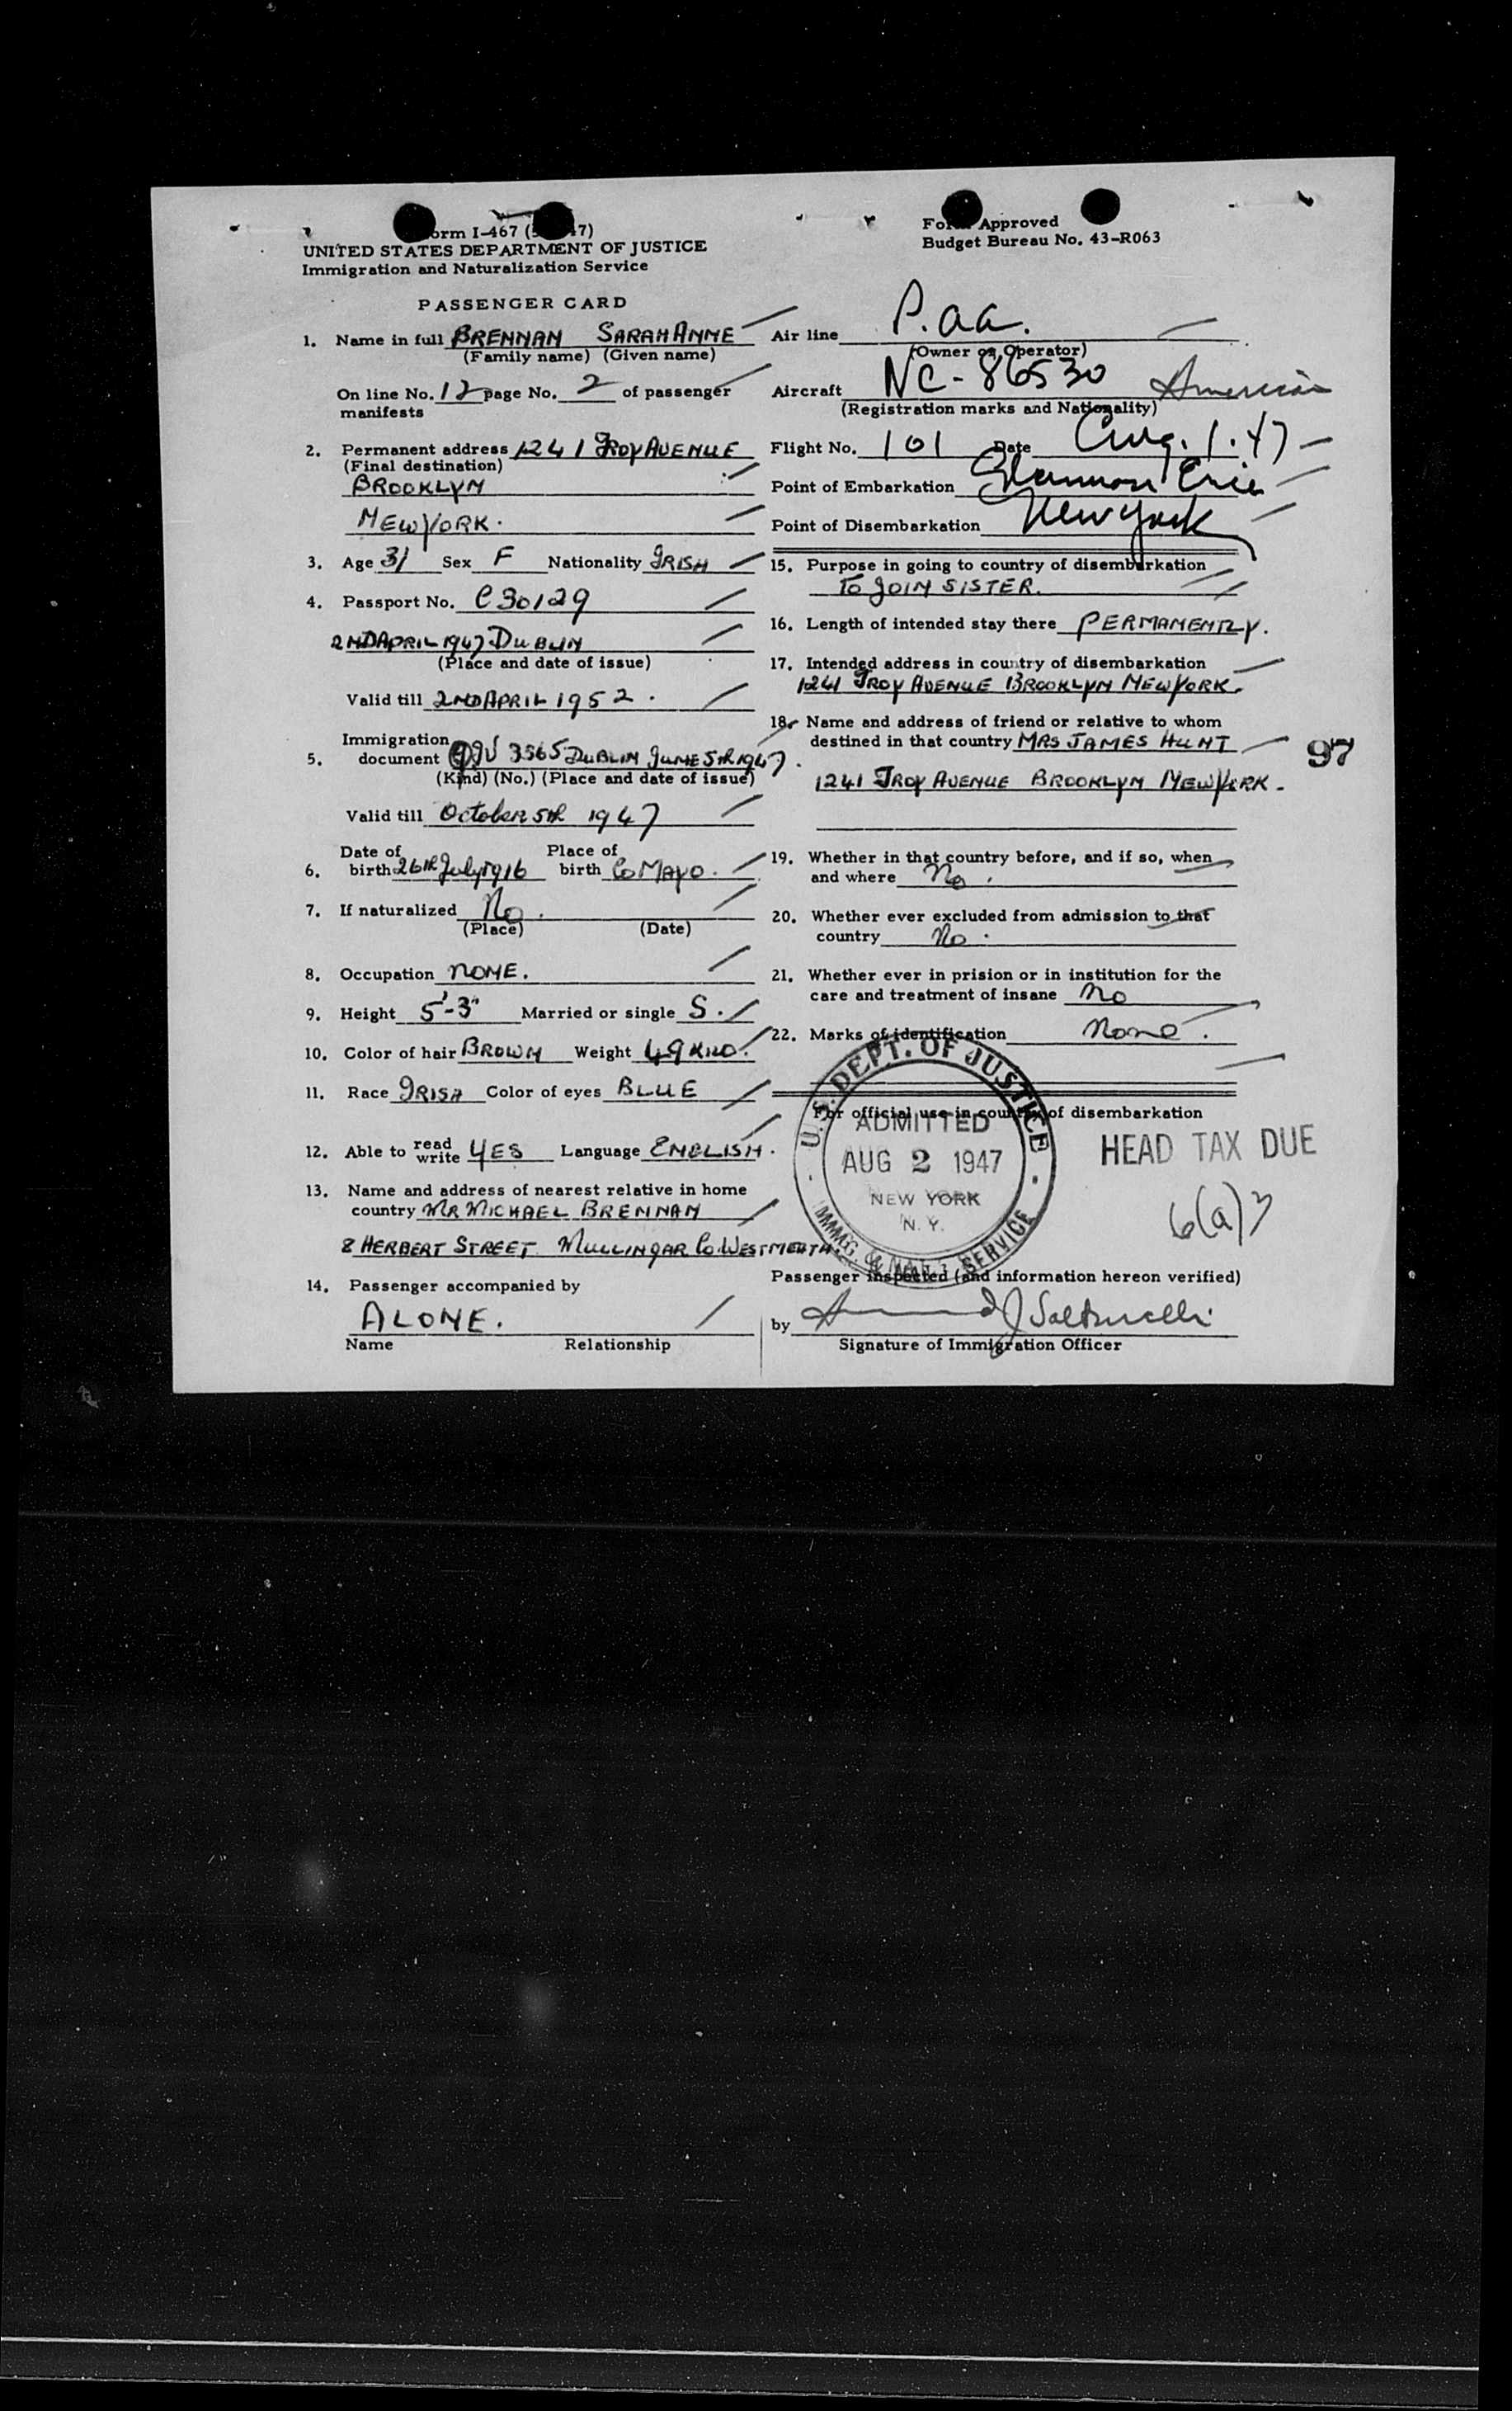 Form I-467 ( 7)
UNITED STATES DEPARTMENT OF JUSTICE
Immigration and Naturalization Service
PASSENGER CARD
1. Name in full BRENNAN SARAH ANNE
(Family name) (Given name)
On line No. 12 page No. 2 of passenger
manifests
2. Permanent address 1241 TROY AVENUE
(Final destination)
BROOKLYN
NEW YORK.
3. Age 31 Sex F Nationality IRISH
4. Passport No. C30129
2ND APRIL 1947 DUBLIN
(Place and date of issue)
Valid till 2ND APRIL 1952.
Immigration
5. document QIV 3565 DUBLIN JUNE 5th 1947.
(Kind) (No.) (Place and date of issue)
Valid till October 5th 1947
Date of Place of
6. birth 26th July 1916 birth Co MAYO.
7. If naturalized No.
(Place) (Date)
8. Occupation NONE.
9. Height 5'-3" Married or single S.
10. Color of hair BROWN Weight 49 KILO.
11. Race IRISH Color of eyes BLUE
12. Able to read write YES Language ENGLISH.
13. Name and address of nearest relative in home
country MR MICHAEL BRENNAN
8 HERBERT STREET MULLINGAR Co. WESTMEATH.
14. Passenger accompanied by
ALONE.
Name Relationship
Form Approved
Budget Bureau No. 43-R063
Air line P.aa.
(Owner or Operator)
Aircraft NC-86530 American
(Registration marks and Nationality)
Flight No. 101 Date Aug. 1. 47
Point of Embarkation Shannon Eire
Point of Disembarkation New York
15. Purpose in going to country of disembarkation
TO JOIN SISTER.
16. Length of intended stay there PERMANENTLY.
17. Intended address in country of disembarkation
1241 TROY AVENUE BROOKLYN NEW YORK.
18. Name and address of friend or relative to whom
destined in that country MRS JAMES HUNT
97
1241 TROY AVENUE BROOKLYN NEW YORK.
19. Whether in that country before, and if so, when
and where No.
20. Whether ever excluded from admission to that
country No.
21. Whether ever in prision or in institution for the
care and treatment of insane No
22. Marks of identification None.
For official use in country of disembarkation
U.S. DEPT. OF JUSTICE
ADMITTED
AUG 2 1947
NEW YORK
N.Y.
IMMIG. & NAT. SERVICE
HEAD TAX DUE
6(a)3
Passenger inspected (and information hereon verified)
by
Signature of Immigration Officer